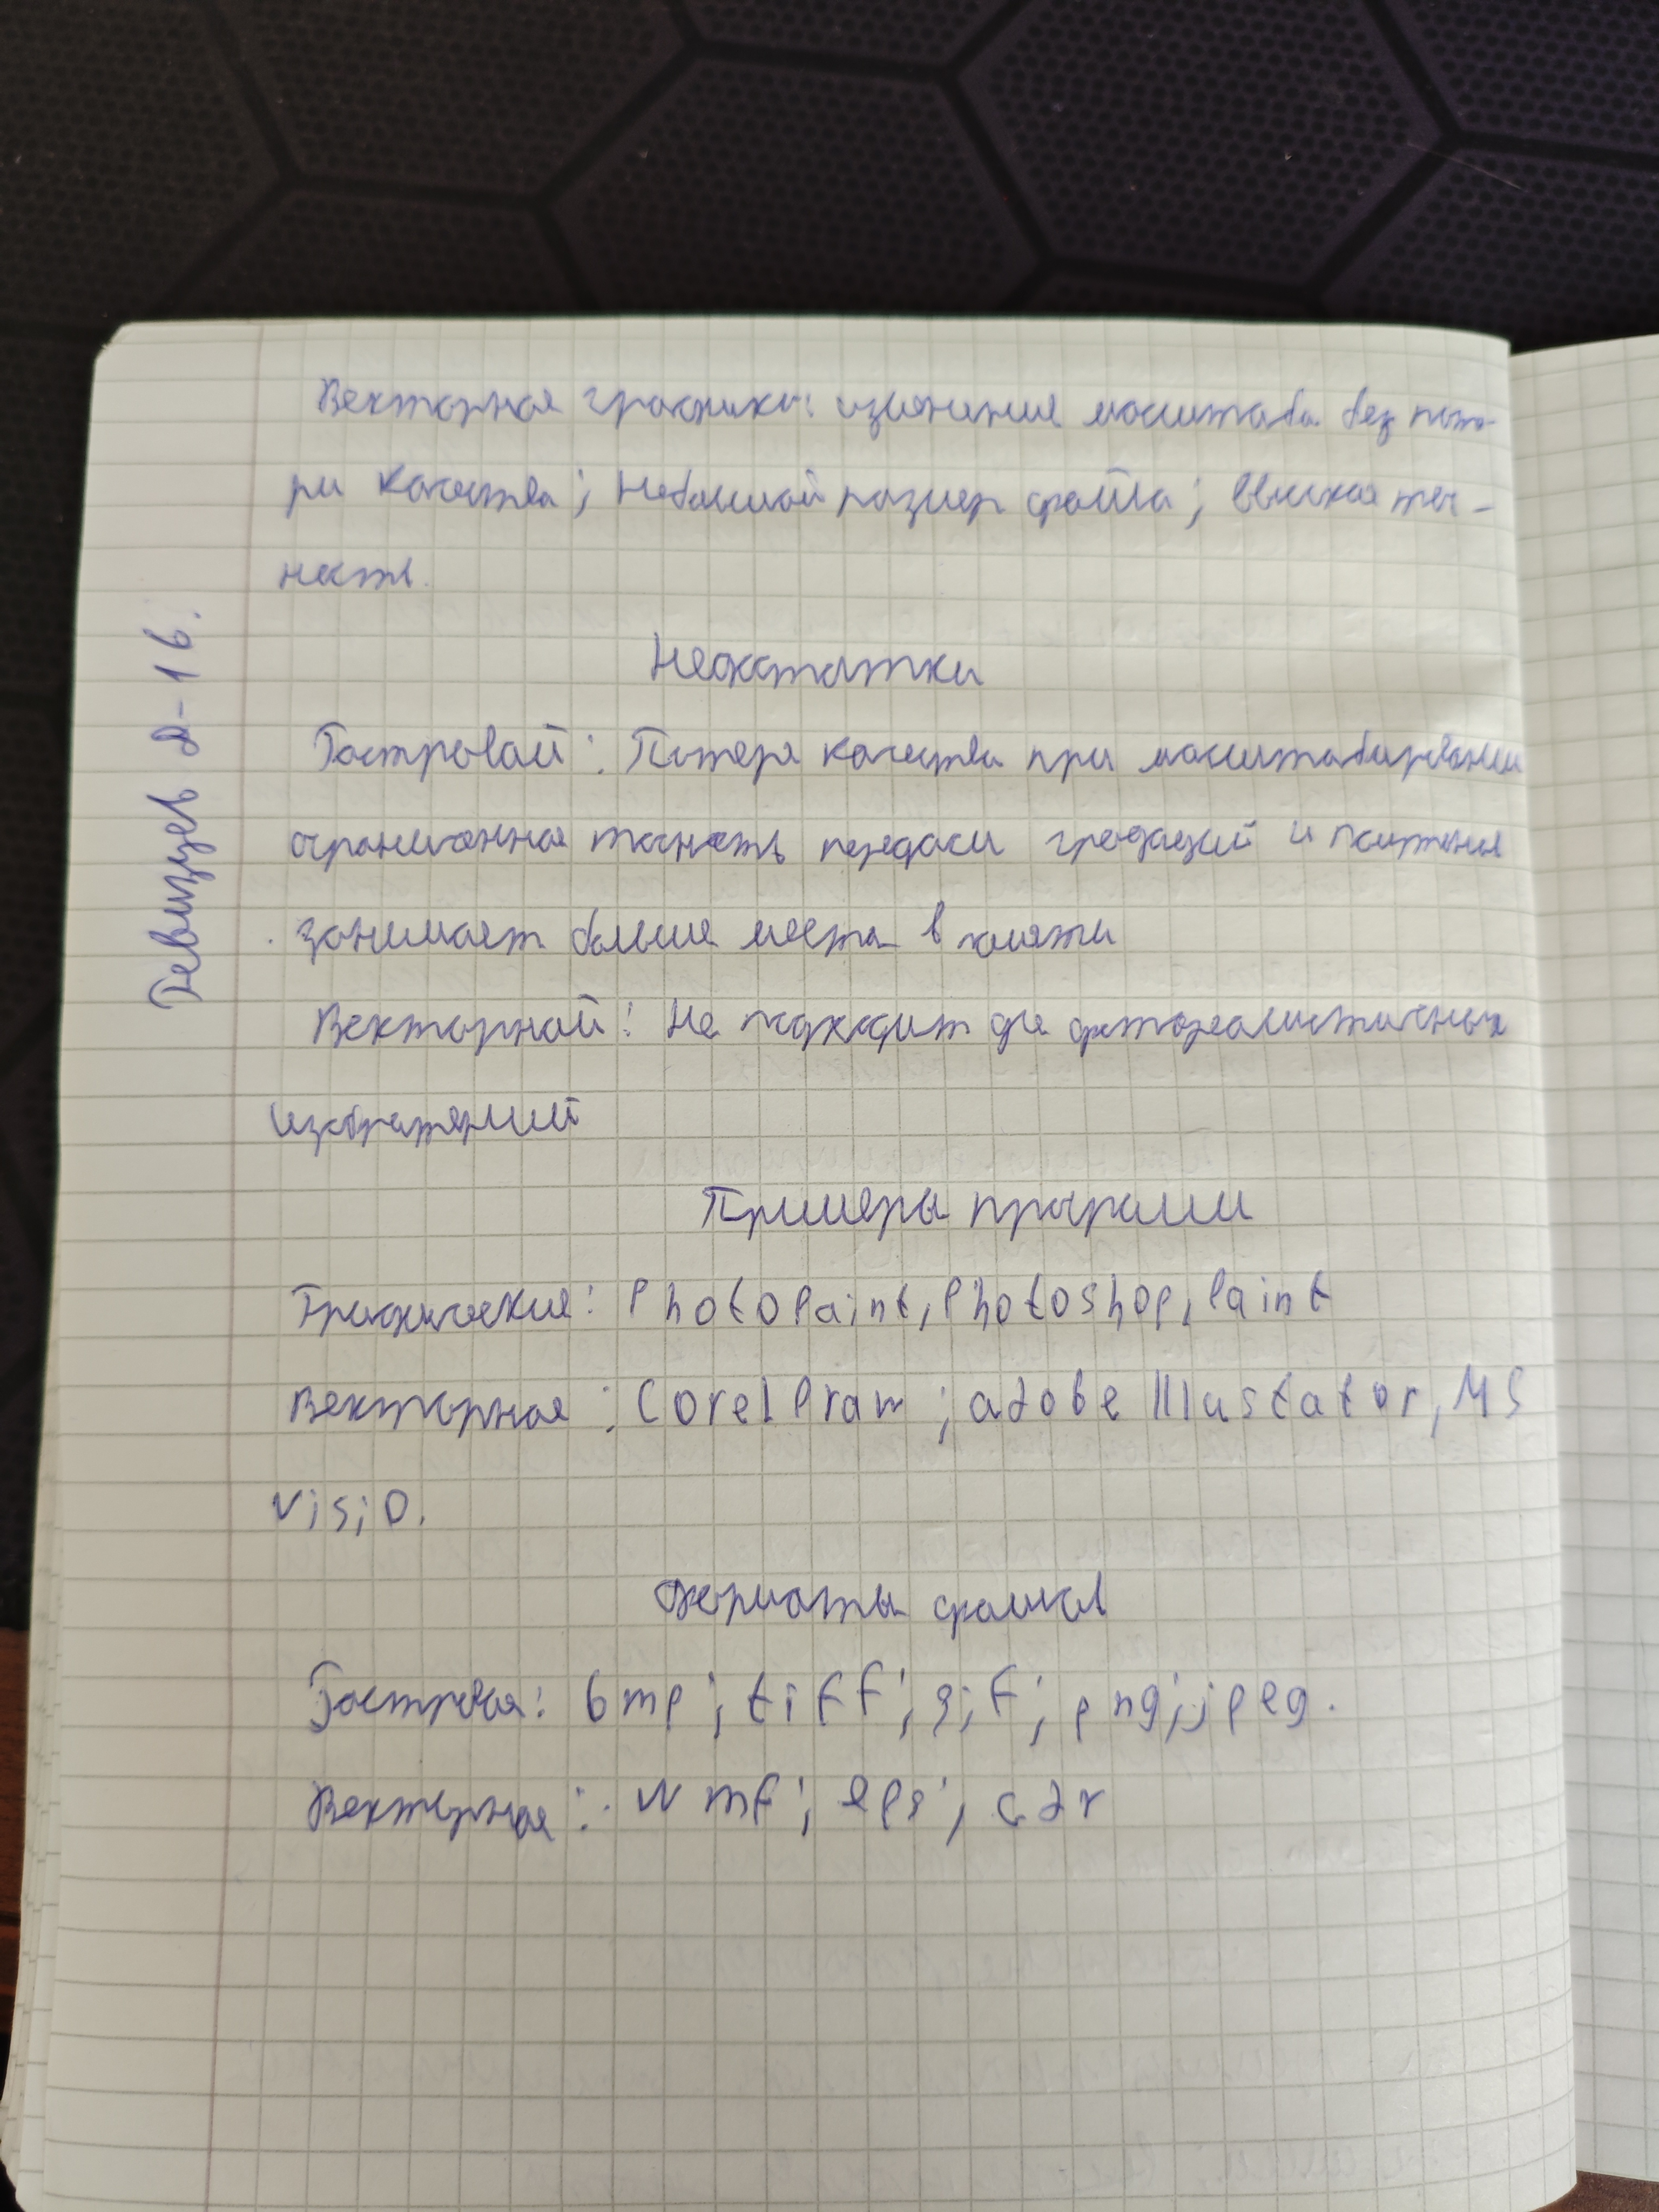 Векторная графика: изменения масштаба без поте-
ри качества; Небольшой размер файла; Высокая точ-
ность.
Недостатки
Растровой: Потеря качества при масштабировании
ограниченная точность передачи градаций и
занимает больше места в памяти
Векторной: Не подходит для фотореалистичных
изображений
Примеры программ
Графические: PhotoPaint, Photoshop, Paint
Векторная: Corel Draw; adobe Illustator, MS
visio.
Форматы файлов
Растровая: bmp; tiff; gif; png; jpeg.
Векторная: wmf; eps; cdr
Ревизцев Д-16.